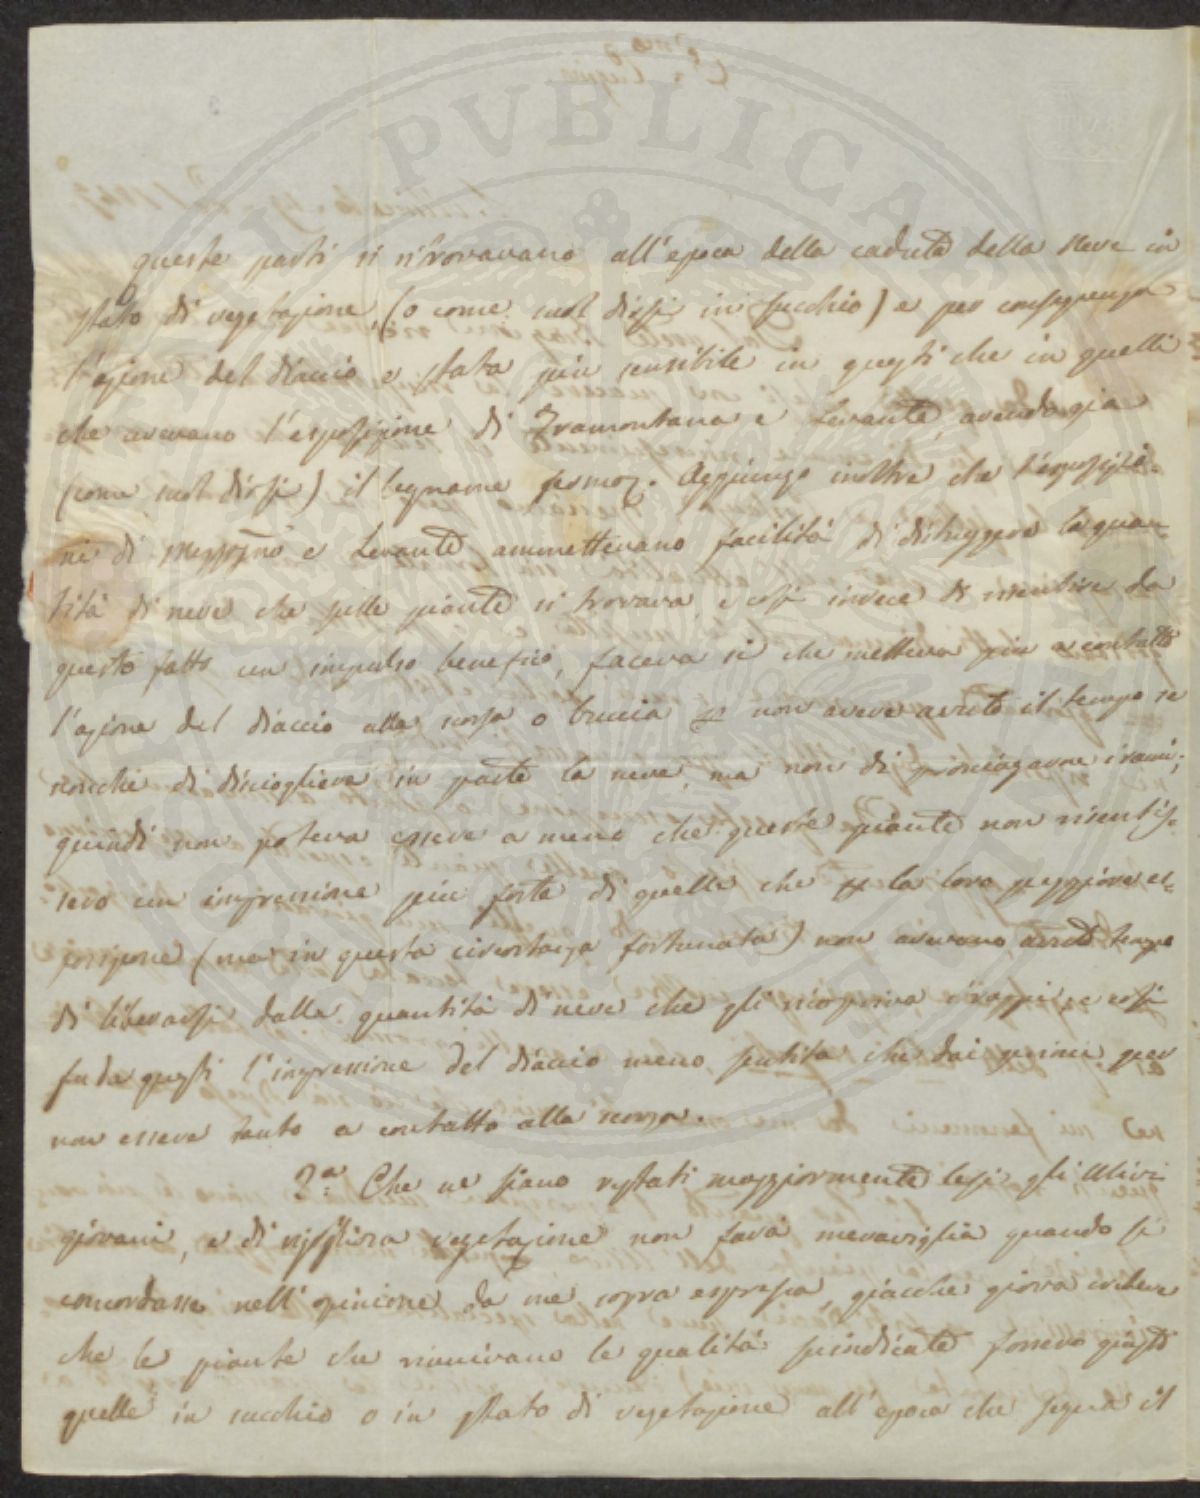 queste parti si ritrovavano all'epoca della caduta della Neve in
stato di vegetazione, (o come suol dirsi in succhio) e per conseguenza
l'azione del diaccio è stata più sensibile in questi che in quelli
che avevano l'esposizione di Tramontana e Levante, avendo già
(come suol dirsi) il legname fermo. Aggiungo inoltre che l'esposizio-
ni di Mezzogno e Levante ammettevano facilità di distruggere la quan-
tità di neve che sulle piante si trovava, e così invece di risentire da
questo fatto un impulso benefico, faceva sì che metteva più a contatto
l'azione del diaccio alla scorza o buccia non aveva avuto il tempo se
nonche di disciogliere in parte la neve, ma non di prosciugarne i rami;
quindi non poteva essere a meno che queste piante non risentis-
sero un impressione più forte di quelle che la loro peggiore es-
posizione (ma in questa circostanza fortunata) non avevano avuto tempo
di liberarsi dalla quantità di neve che gli ricopriva i rappi, e così
fu da questi l'impressione del diaccio meno sentita che dai primi per
non essere tanto a contatto alla scorza.
2.a Che ne siano restati maggiormente lesi gli Ulivi
giovani, e di vegetazione non farà meraviglia quando si
concordasse nell'opinione da me sopra espressa, giacchè giova credere
che le piante che riunivano le qualità suindicate fossero giusto
quelle in succhio o in stato di vegetazione all'epoca che seguì il
PUBLICA